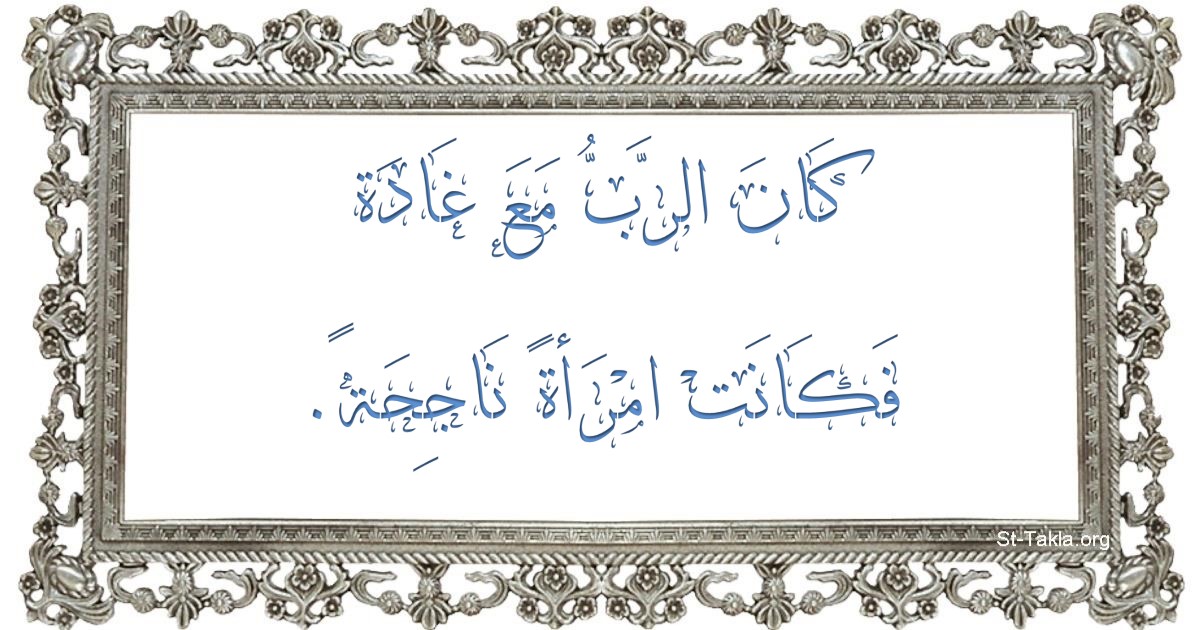 كَانَ الرَّبُّ مَعَ غَادَة
فَكَانَتْ امْرَأةً نَاجِحَةً.
St-Takla.org